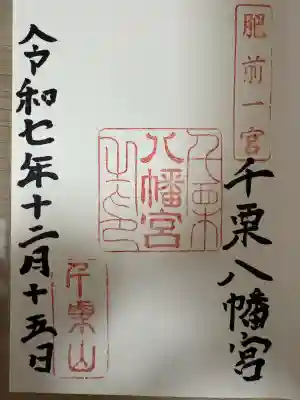 肥前一宮
千栗八幡宮
八幡宮
千栗山
令和七年十二月十五日